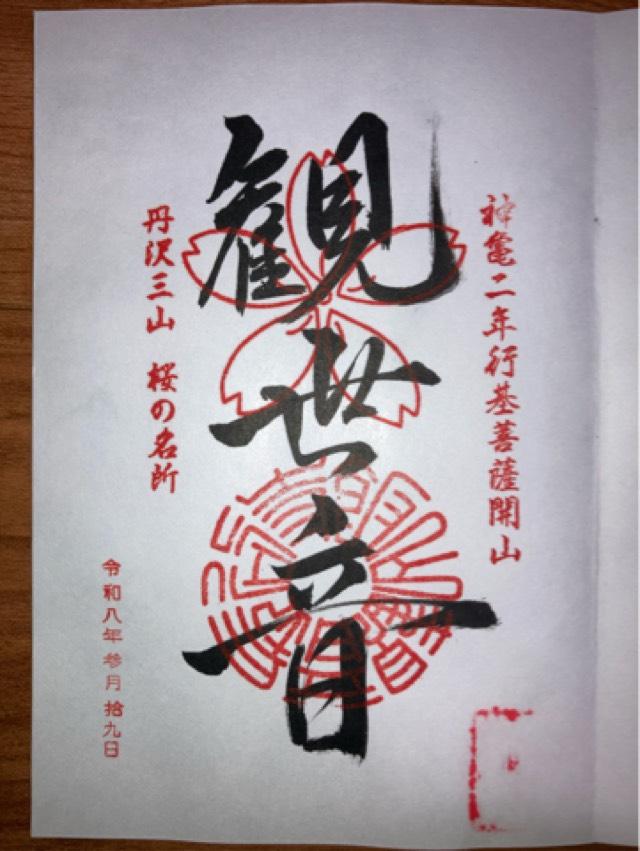 神亀二年行基菩薩開山
観世音
丹沢三山 桜の名所
令和八年 参月 拾九日